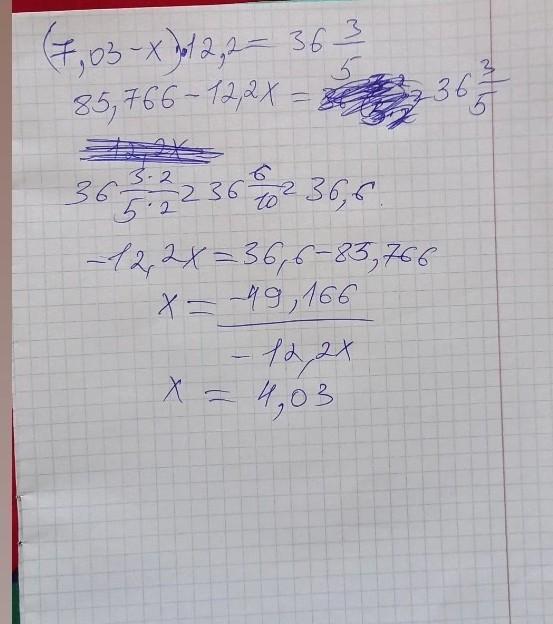 (7,03-x)·12,2= 36 3/5
85,766-12,2x = 36 3/5
36 3·2/5·2 = 36 6/10 = 36,6.
-12,2x=36,6-85,766
x = -49,166
-12,2x
x = 4,03